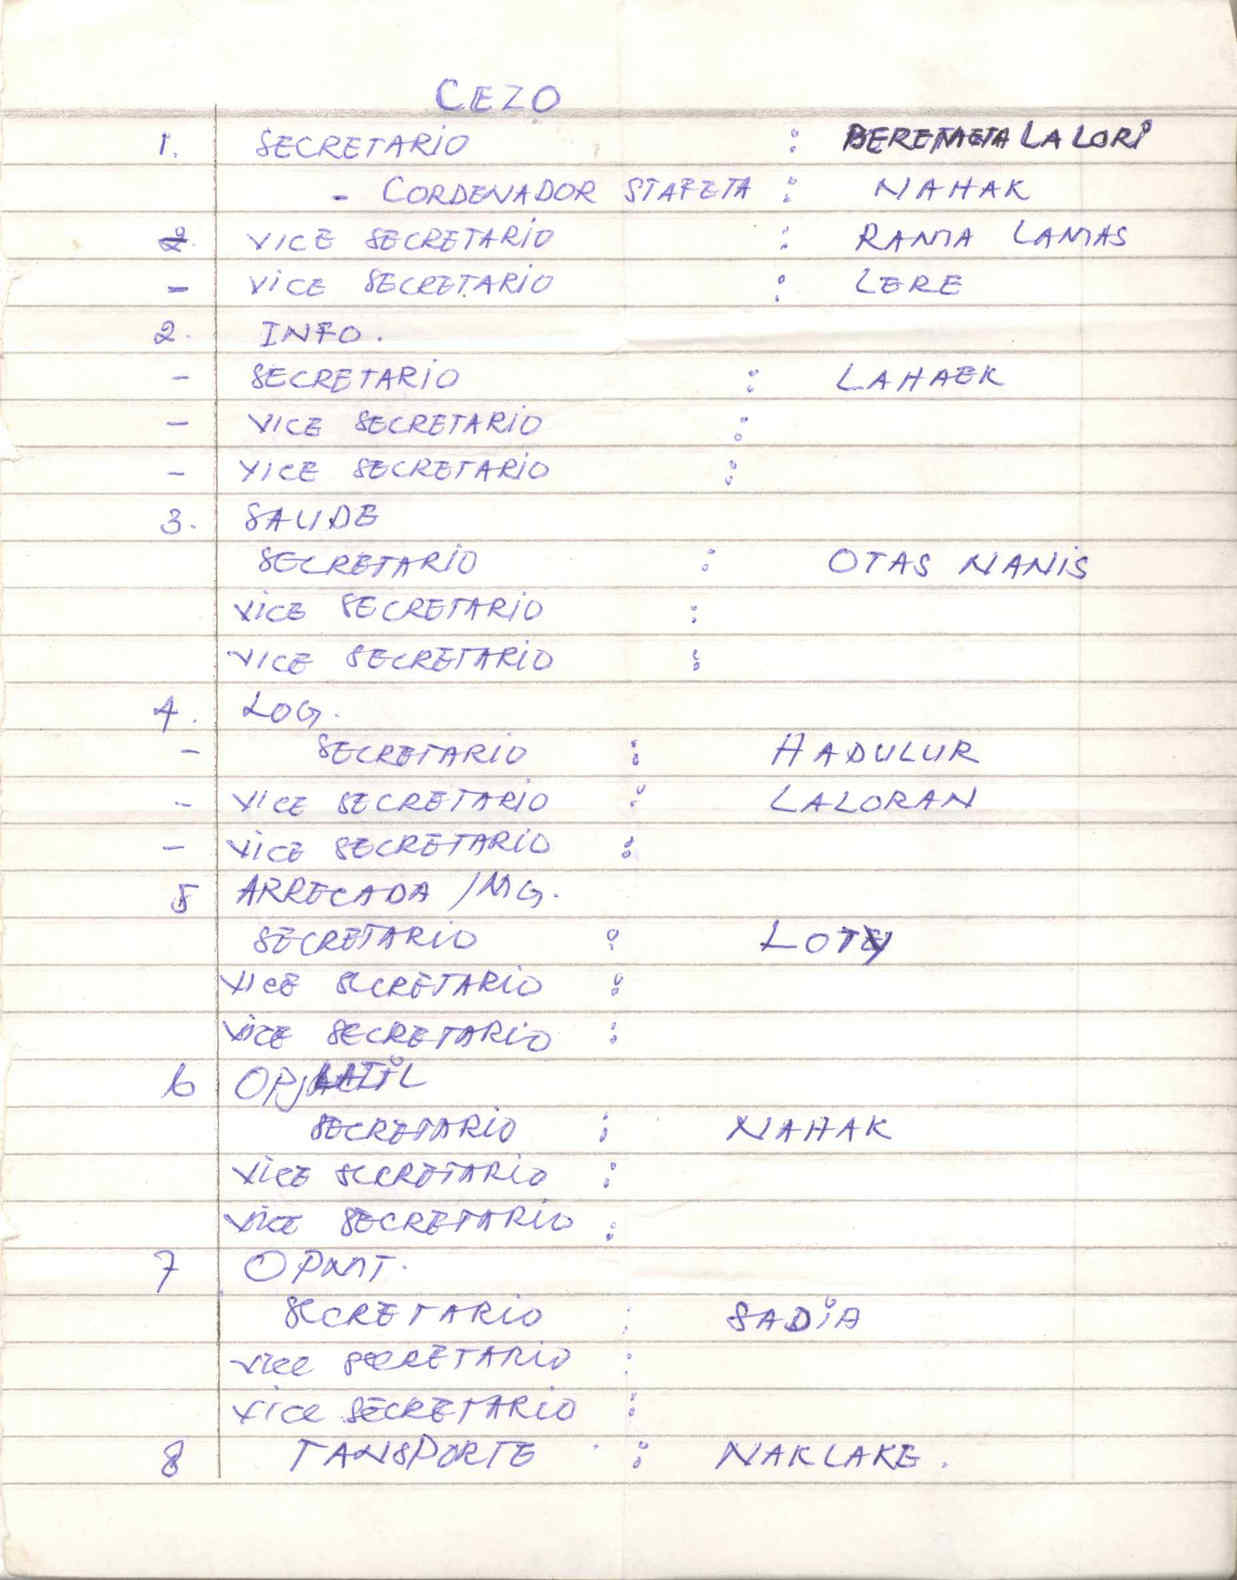 CEZO
1. SECRETARIO : LALORI
- CORDENADOR STAFETA : NAHAK
2 VICE SECRETARIO : RAMA LAMAS
- VICE SECRETARIO : LERE
2. INFO.
- SECRETARIO : LAHAEK
- VICE SECRETARIO :
- VICE SECRETARIO :
3. SAUDE
SECRETARIO : OTAS NANIS
VICE SECRETARIO :
VICE SECRETARIO :
4. LOG.
- SECRETARIO : HADULUR
- VICE SECRETARIO : LALORAN
- VICE SECRETARIO :
5 ARRECADA /MG.
SECRETARIO : LOTY
VICE SECRETARIO :
VICE SECRETARIO :
6
SECRETARIO : NAHAK
VICE SECRETARIO :
VICE SECRETARIO :
7 OPMT.
SECRETARIO : SADIA
VICE SECRETARIO :
VICE SECRETARIO :
8 TANSPORTE : NAKLAKE.